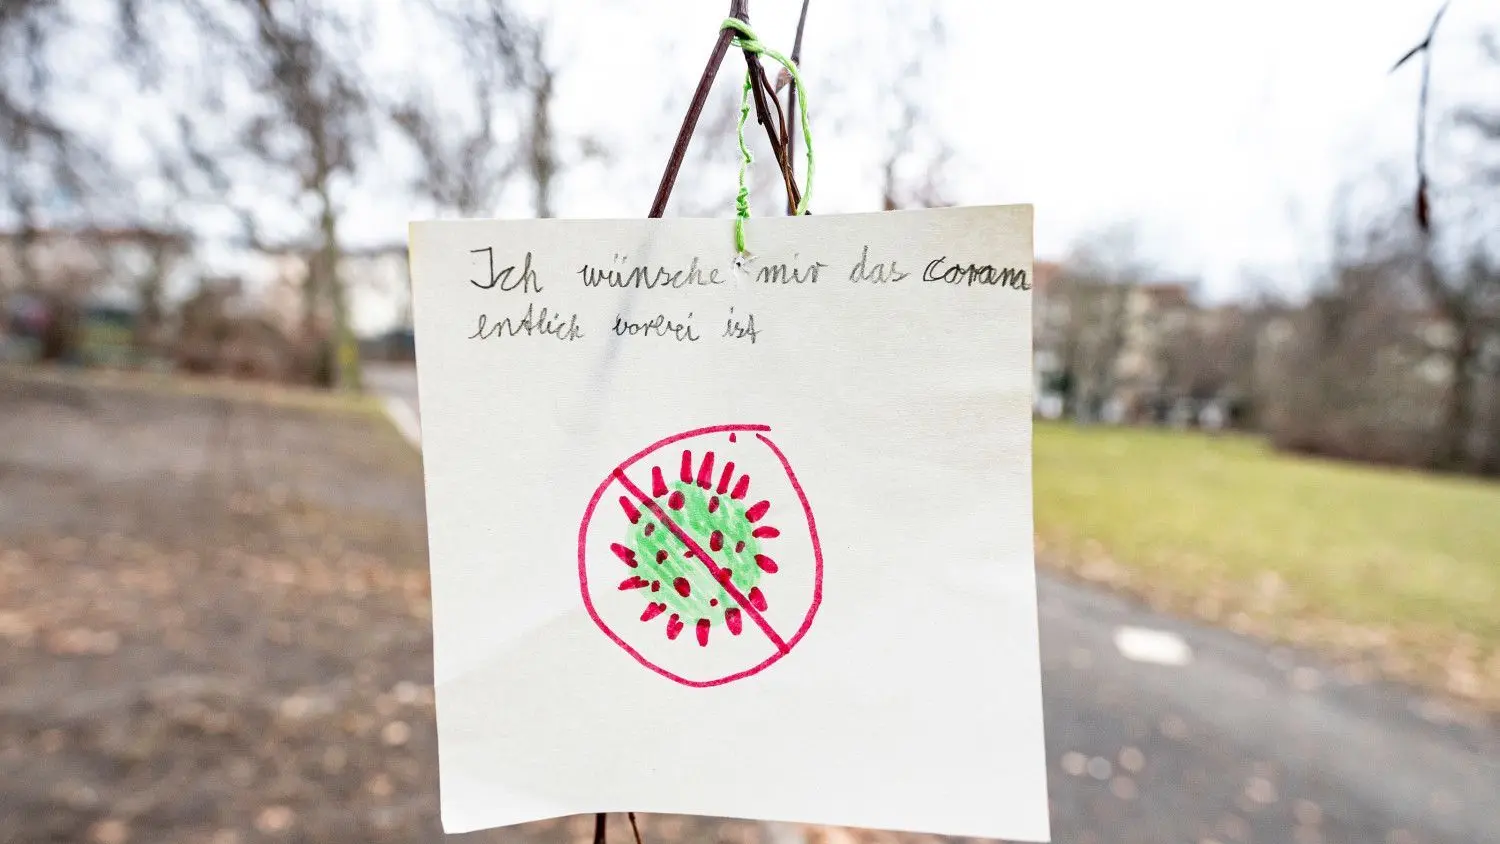 Ich wünsche mir das Corana
entlich vorbei ist